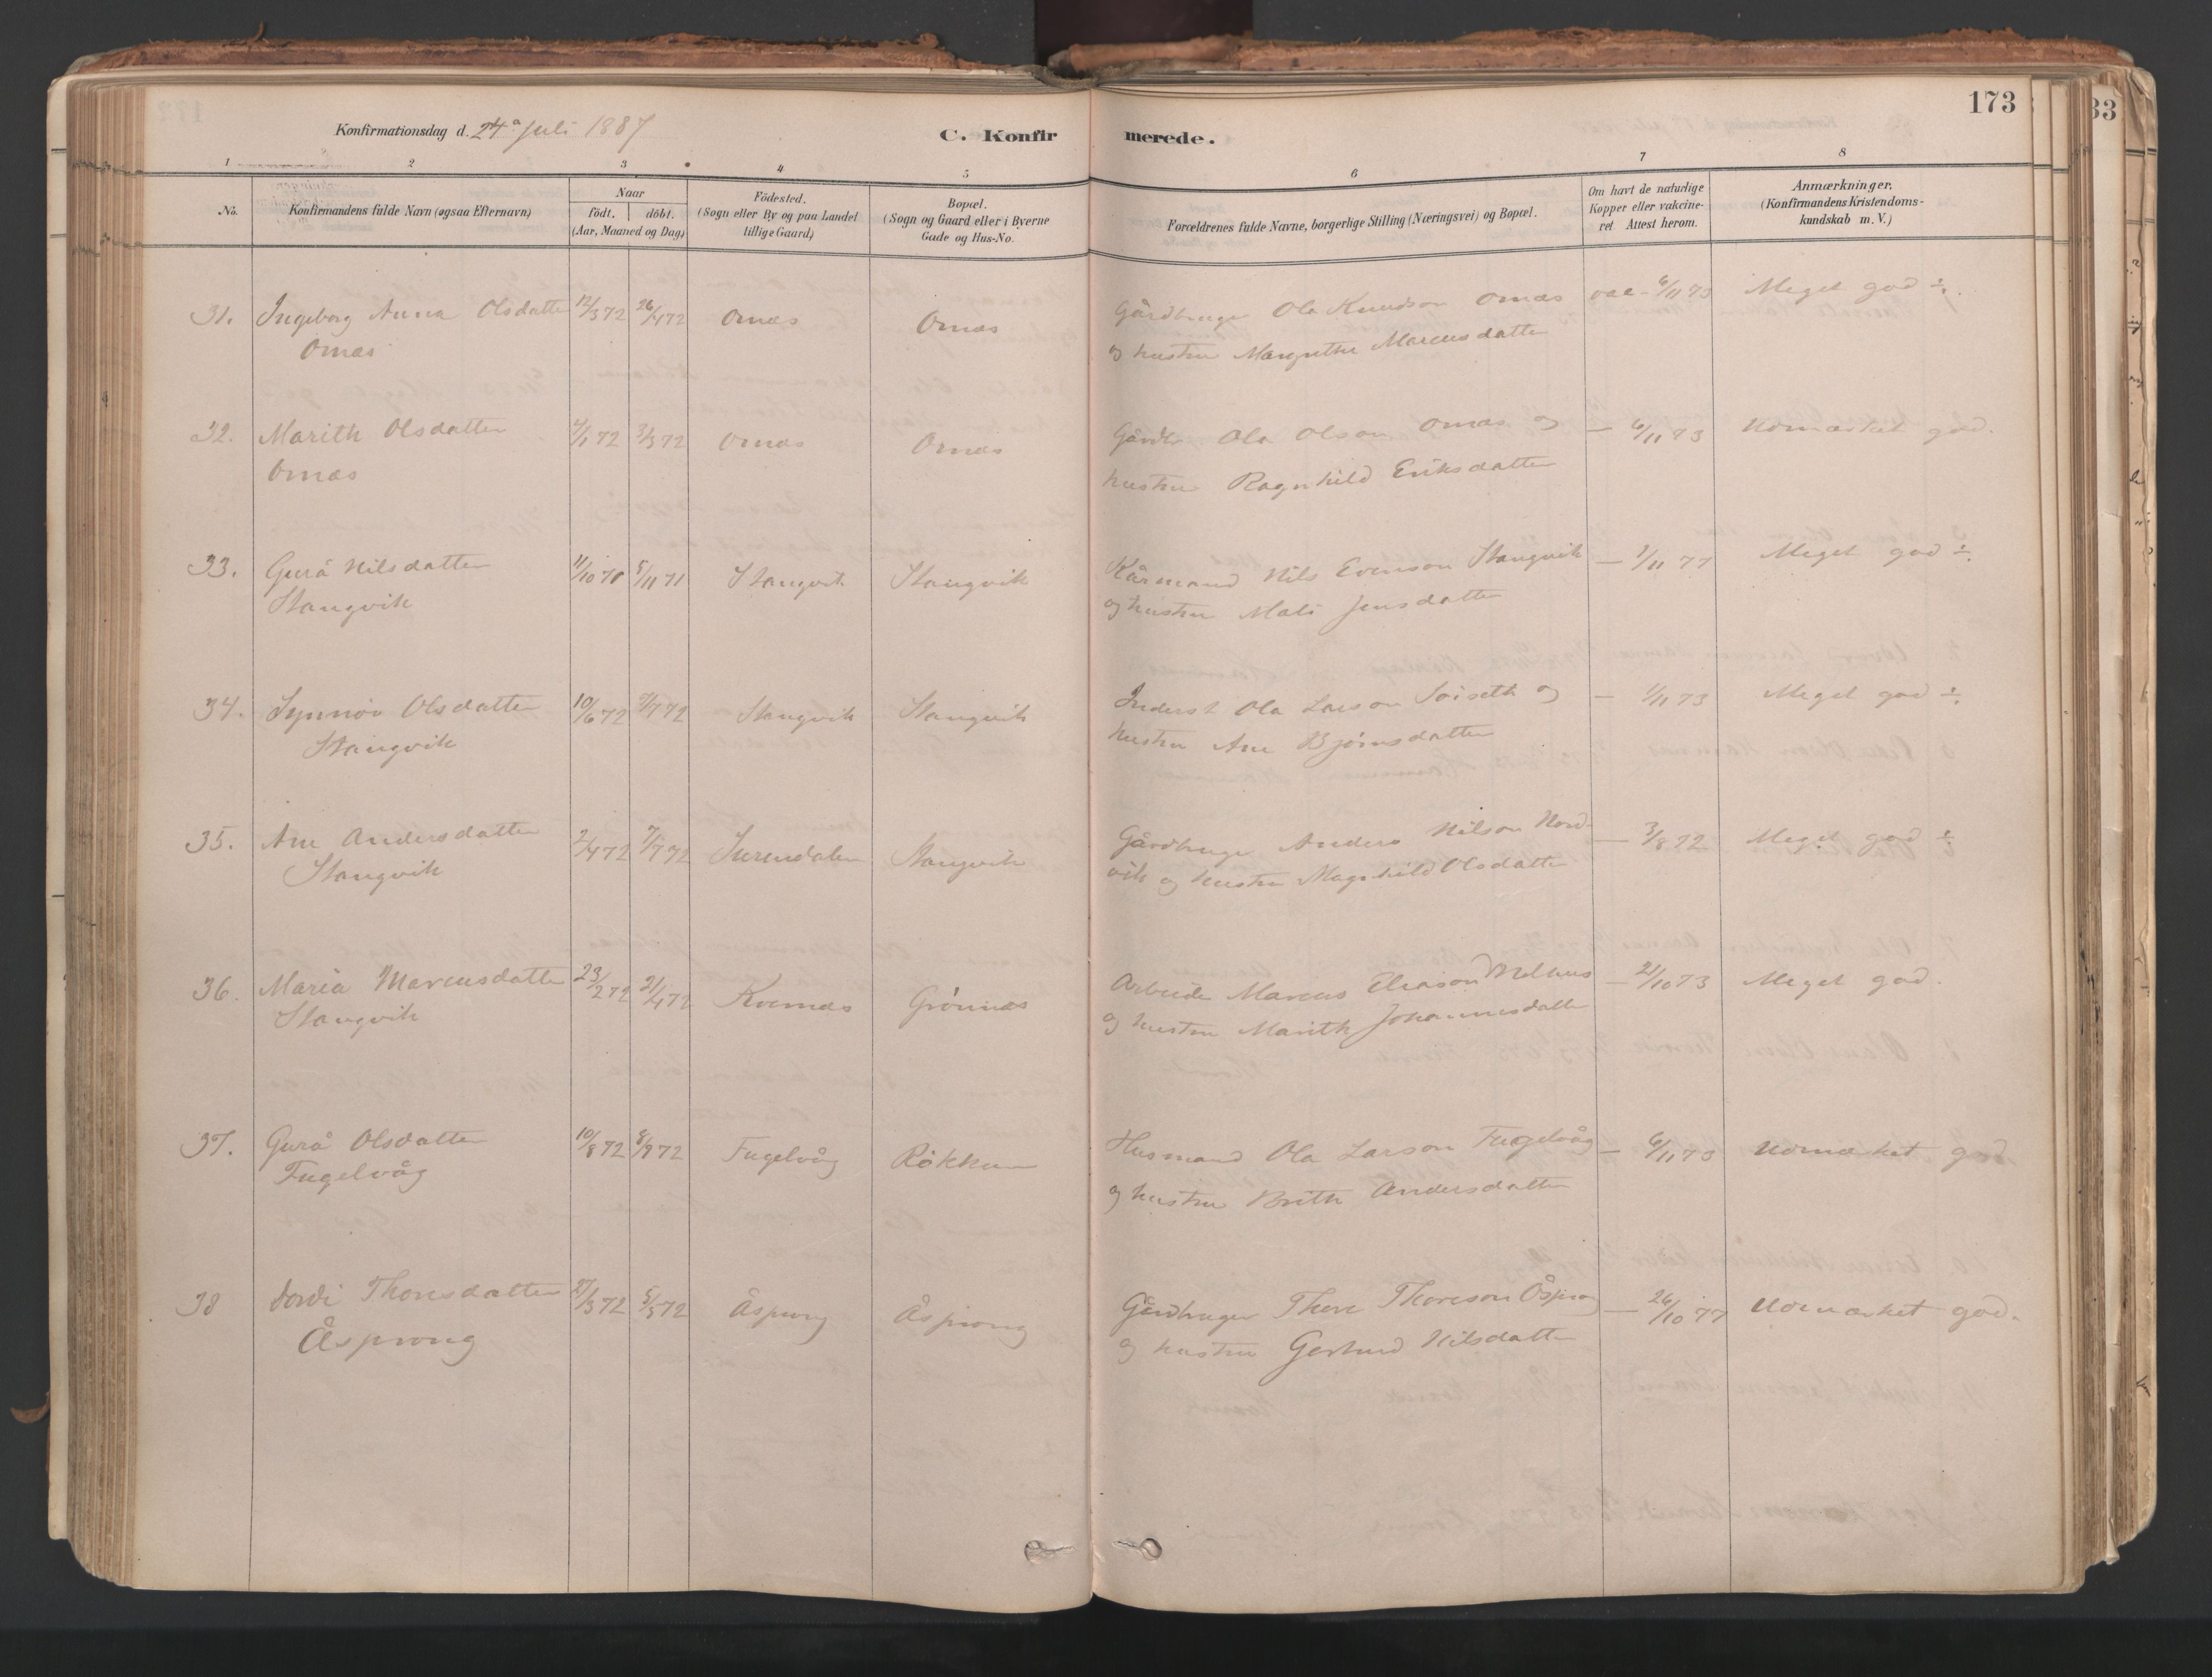 173
33
Konfirmationsdag d. 24de juli 1887
C. Konfirmerede.
1 2 3 4 5 6 7 8
No.
Konfirmandens fulde Navn (ogsaa Efternavn)
Naar
födt. döbt.
(Aar, Maaned og Dag)
Födested.
(Sogn eller By og paa Landet
tillige Gaard)
Bopæl.
(Sogn og Gaard eller i Byerne
Gade og Hus-No.
Forældrenes fulde Navne, borgerlige Stilling (Næringsvei) og Bopæl.
Om havt de naturlige
Kopper eller vakcine-
ret Attest herom.
Anmærkninger.
(Konfirmandens Kristendoms-
kundskab m. V.)
31. Ingeborg Anna Olsdatter 12/3 72 26/4 72 Omæs Omæs Gårdbruger Ola Knudson Omæs vac - 6/11 73 Meget god ÷.
Omæs og hustru Margrethe Marcusdatter
32. Marith Olsdatter 4/1 72 3/3 72 Omæs Omæs Gårdbr Ola Olson Omæs og — 6/11 73 Udmærket god.
Omæs hustru Ragnhild Eriksdatter
33. Gurå Nilsdatter 11/10 71 5/11 71 Stangvik Stangvik Kårmand Nils Evenson Stangvik — 1/11 77 Meget god ÷
Stangvik og hustru Mali Jensdatter
34. Synnöv Olsdatter 10/6 72 7/7 72 Stangvik Stangvik Inderst Ola Larson Soiseth og — 1/11 73 Meget god ÷
Stangvik hustru Ane Björnsdatter
35. Ane Andersdatter 2/4 72 7/7 72 Surendalen Stangvik Gårdbruger Anders Nilson Nord- — 3/8 72 Meget god ÷
Stangvik vik og hustru Magnhild Olsdatter
36. Maria Marcusdatter 23/2 72 21/4 72 Kvernæs Grönnæs Arbeider Marcus Eliason Melhus — 21/10 73 Meget god.
Stangvik og hustru Marith Johannesdatter
37. Gurå Olsdatter 10/8 72 8/9 72 Fugelvåg Rökkum Husmand Ola Larson Fugelvåg — 6/11 73 Udmærket god
Fugelvåg og hustru Brith Andersdatter
38 Dordi Thoresdatter 27/3 72 5/5 72 Åsprong Åsprong Gårdbruger Thore Thoreson Åsprong — 26/10 77 Udmærket god.
Åsprong og hustru Gertrud Nilsdatter